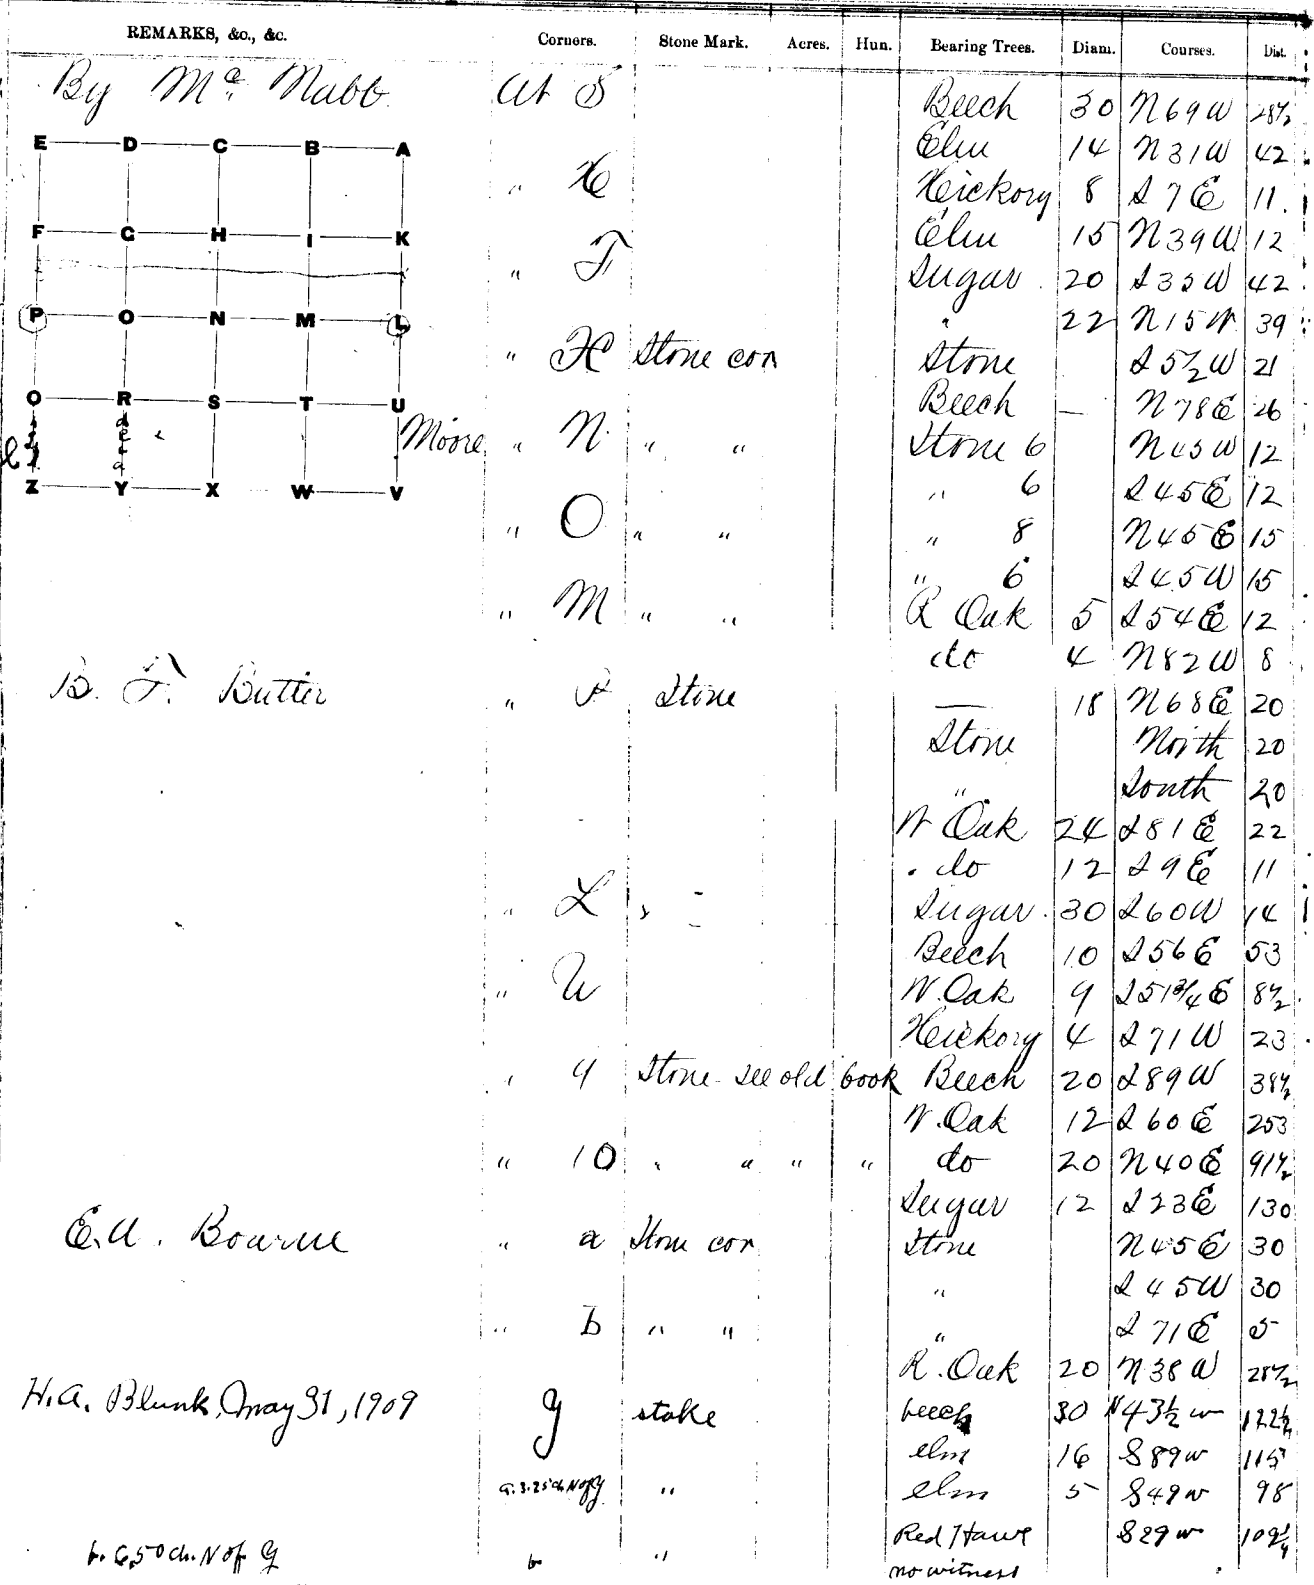 REMARKS, &c., &c. Corners. Stone Mark. Acres. Hun. Bearing Trees. Diam. Courses. Dist.
By Mc Nabb At S Beech 30 N69W 28½
E D C B A
Elm 14 N31W 42
" H Hickory 8 S7E 11
F G H I K
Elm 15 N39W 12
" T Sugar 20 S35W 42
P O N M L
" 22 N15W 39
" H Stone cor Stone S5½W 21
O R S T U
Beech — N78E 26
Moore " N " " Stone 6 N45W 12
Z Y X W V
" 6 S45E 12
" O " " " 8 N45E 15
" 6 S45W 15
" M " " R Oak 5 S54E 12
do 4 N82W 8
B. F. Butler " P Stone — 18 N68E 20
Stone North 20
" South 20
W Oak 24 S81E 22
do 12 S9E 11
" L Sugar 30 S60W 14
Beech 10 S56E 53
" U W. Oak 9 S51¾E 8½
Hickory 4 S71W 23
" 9 Stone see old book Beech 20 S89W 38½
W. Oak 12 S60E 253
" 10 " " " " do 20 N40E 91½
Sugar 12 S23E 130
E.A. Bourne " a Stone cor Stone N45E 30
" S45W 30
" b " " " S71E 5
R. Oak 20 N38W 28½
H.A. Blunk, May 31, 1909 y stake beech 30 N43½w 122½
elm 16 S89w 115
a. 3.25 ch N of y " elm 5 S49w 98
Red Haw S29w 109¼
b. 6.50 ch. N of y b " no witness